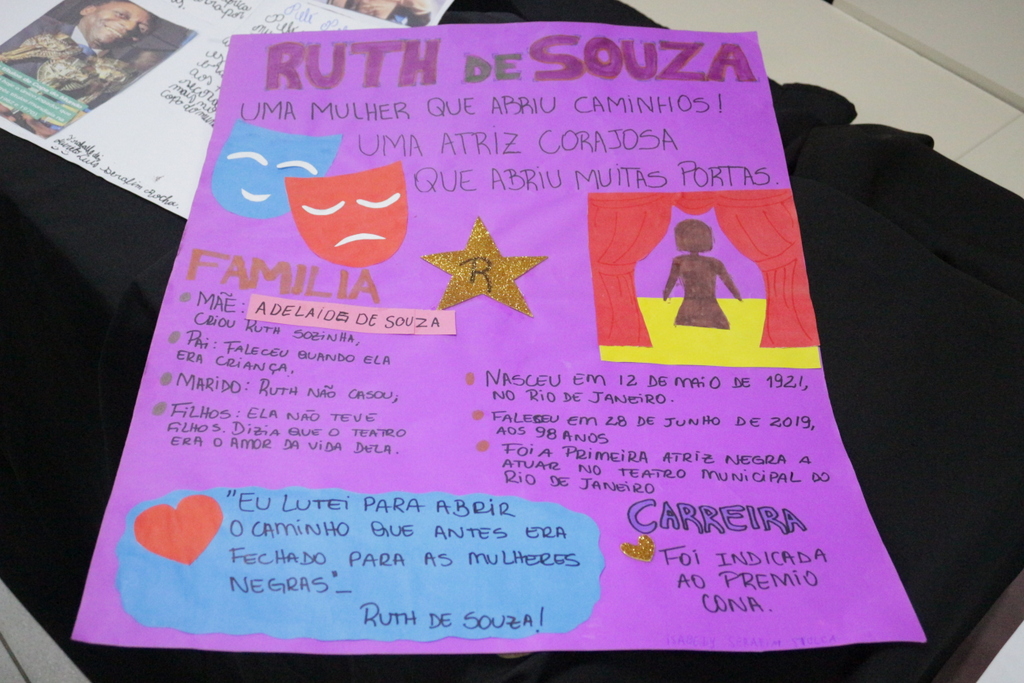 RUTH DE SOUZA
UMA MULHER QUE ABRIU CAMINHOS!
UMA ATRIZ CORAJOSA
QUE ABRIU MUITAS PORTAS.
R
FAMILIA
MÃE: ADELAIDE DE SOUZA
CRIOU RUTH SOZINHA,
PAI: FALECEU QUANDO ELA
ERA CRIANÇA,
MARIDO: RUTH NÃO CASOU,
FILHOS: ELA NÃO TEVE
FILHOS. DIZIA QUE O TEATRO
ERA O AMOR DA VIDA DELA.
NASCEU EM 12 DE MAIO DE 1921,
NO RIO DE JANEIRO.
FALECEU EM 28 DE JUNHO DE 2019,
AOS 98 ANOS
FOI A PRIMEIRA ATRIZ NEGRA A
ATUAR NO TEATRO MUNICIPAL DO
RIO DE JANEIRO
"EU LUTEI PARA ABRIR
O CAMINHO QUE ANTES ERA
FECHADO PARA AS MULHERES
NEGRAS"_
RUTH DE SOUZA!
CARREIRA
FOI INDICADA
AO PREMIO
CONA.